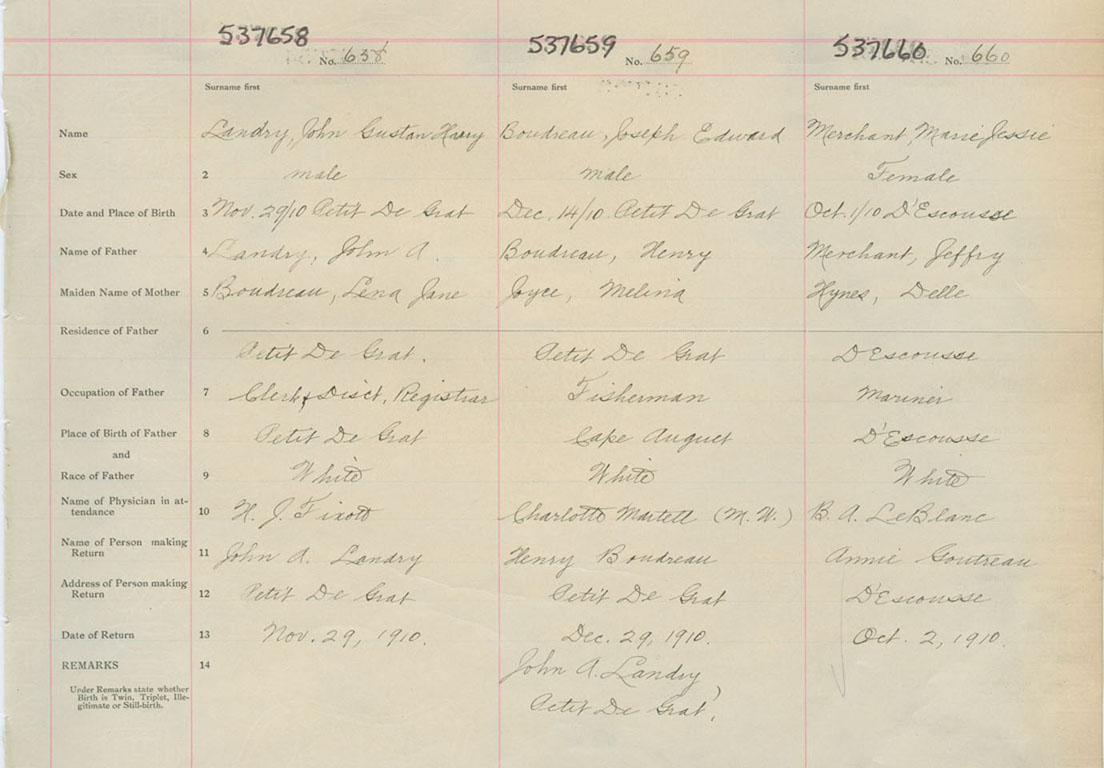 537658 537659 537660
No. 658 No. 659 No. 660
Surname first Surname first Surname first
Name Landry, John Gustan Harry Boudreau, Joseph Edward Merchant, Marie Jessie
Sex 2 male male Female
Date and Place of Birth 3 Nov. 29/10 Petit De Grat Dec. 14/10 Petit De Grat Oct. 1/10 D'Escousse
Name of Father 4 Landry, John A. Boudreau, Henry Merchant, Jeffry
Maiden Name of Mother 5 Boudreau, Lena Jane Joyce, Melina Hynes, Delle
Residence of Father 6
Petit De Grat. Petit De Grat D'Escousse
Occupation of Father 7 Clerk & Disct, Registrar Fisherman Mariner
Place of Birth of Father 8 Petit De Grat Cape Auguet D'Escousse
and
Race of Father 9 White White White
Name of Physician in at-
tendance 10 H. J. Fixott Charlotte Martell (M. W.) B. A. LeBlanc
Name of Person making
Return 11 John A. Landry Henry Boudreau Annie Goutreau
Address of Person making
Return 12 Petit De Grat Petit De Grat D'Escousse
Date of Return 13 Nov. 29, 1910. Dec. 29, 1910. Oct. 2, 1910.
REMARKS 14 John A. Landry,
Under Remarks state whether
Birth is Twin, Triplet, Ille-
gitimate or Still-birth.
Petit De Grat,